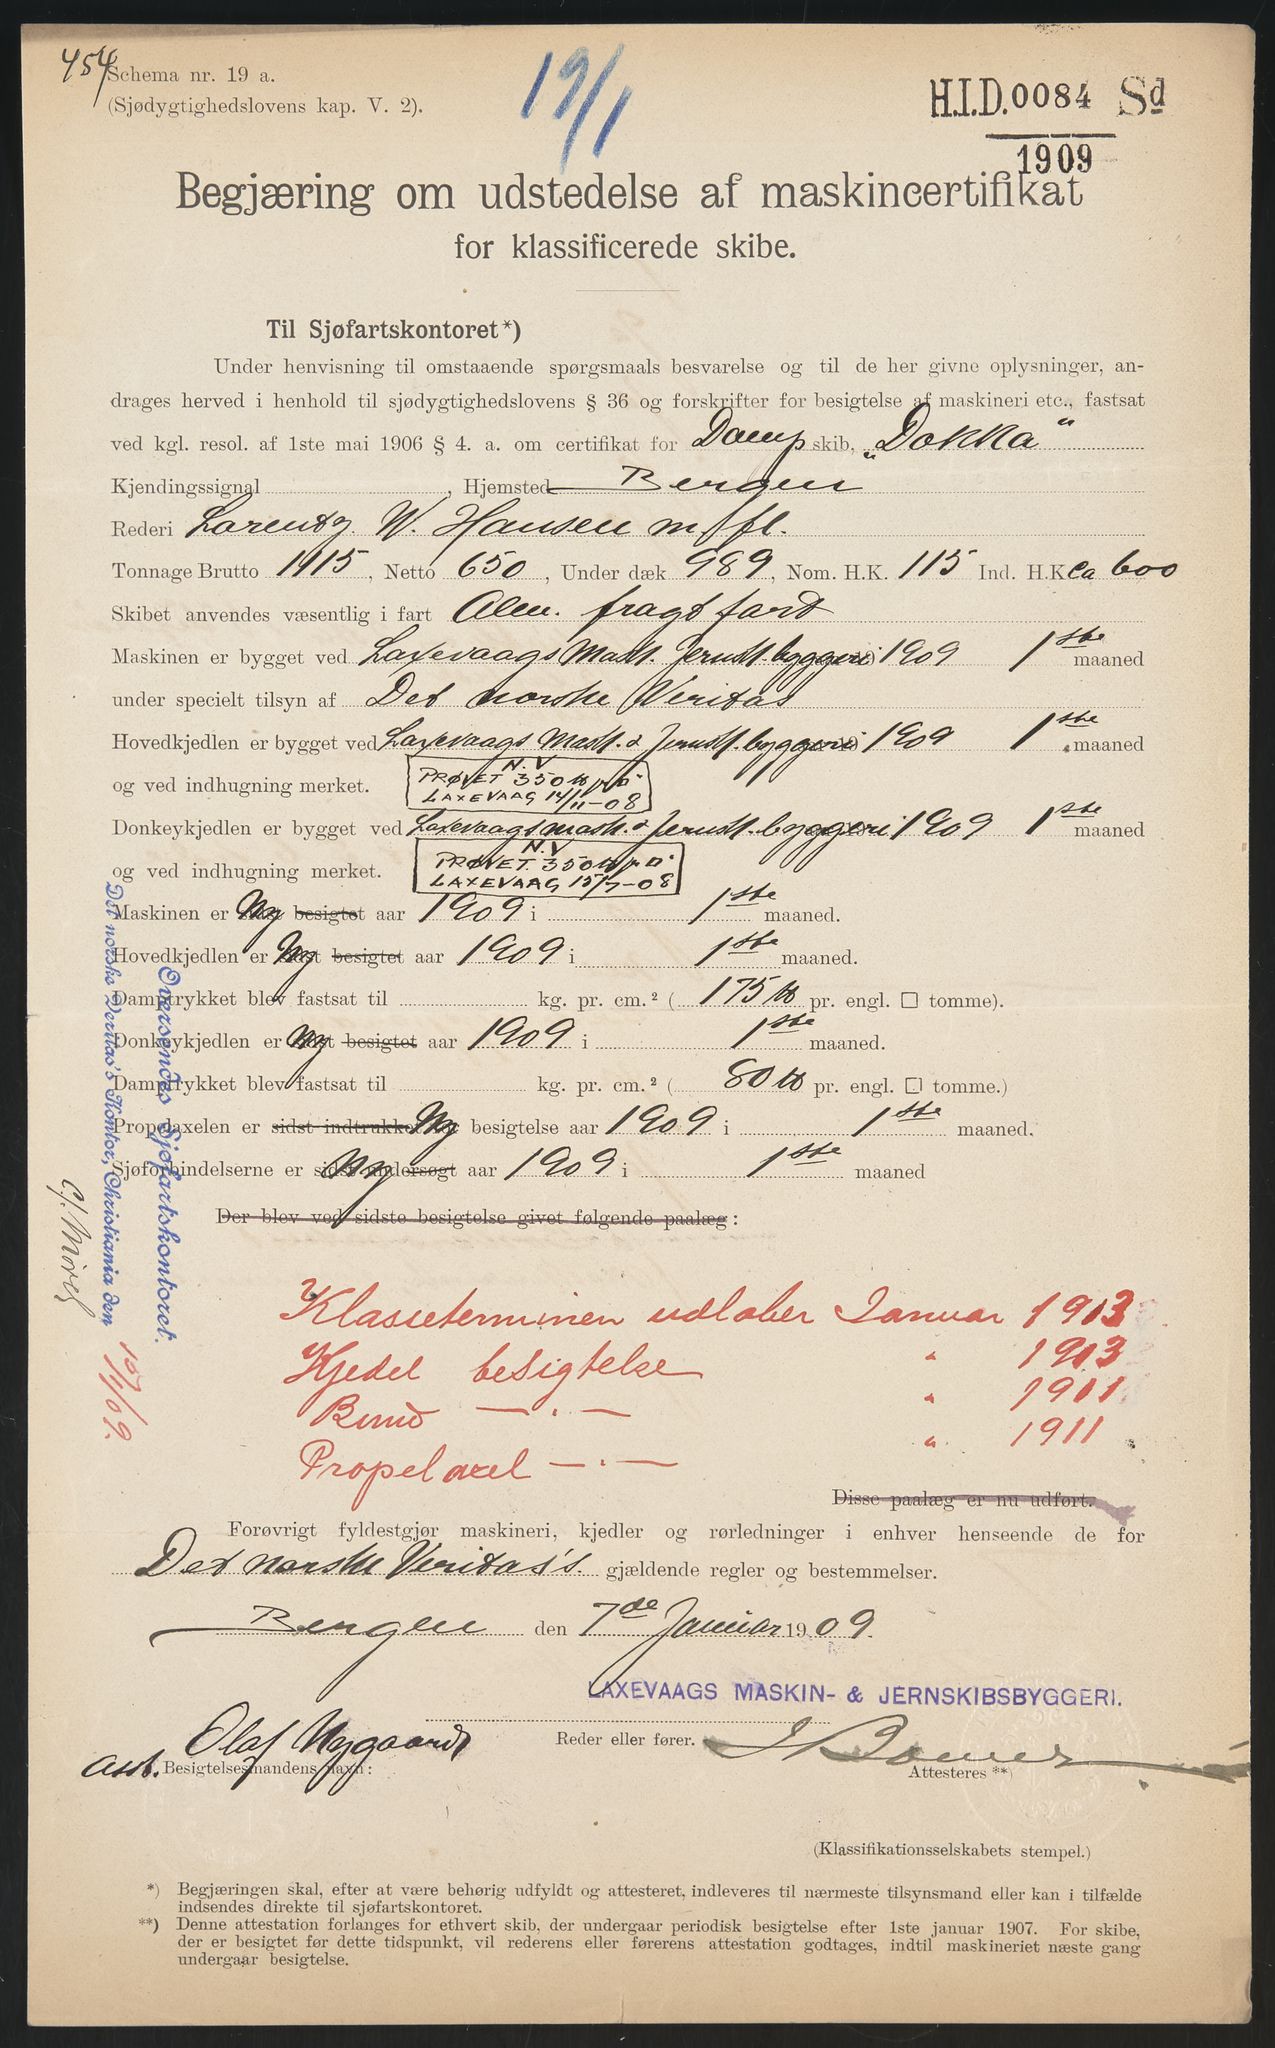 454
Schema nr. 19 a.
(Sjødygtighedslovens kap. V. 2).
19/1
H.I.D. 0084 Sd
1909
Begjæring om udstedelse af maskincertifikat
for klassificerede skibe.
Til Sjøfartskontoret*)
Under henvisning til omstaaende spørgsmaals besvarelse og til de her givne oplysninger, an-
drages herved i henhold til sjødygtighedslovens § 36 og forskrifter for besigtelse af maskineri etc., fastsat
ved kgl. resol. af 1ste mai 1906 § 4. a. om certifikat for Damp skib, „Dokka"
Kjendingssignal , Hjemsted Bergen
Rederi Lorentz W. Hansen m. fl.
Tonnage Brutto 1115, Netto 650, Under dæk 989, Nom. H.K. 115 Ind. H.K ca 600
Skibet anvendes væsentlig i fart Alm. fragtfart
Maskinen er bygget ved Laxevaags Mask. Jernsk. byggeri 1909 1ste maaned
under specielt tilsyn af Det norske Veritas
Hovedkjedlen er bygget ved Laxevaags Mask. & Jernsk. byggeri 1909 1ste maaned
N.V
og ved indhugning merket. PRØVET 350 lb pr □"
LAXEVAAG 14/11-08
Donkeykjedlen er bygget ved Laxevaags mask. & Jernsk. byggeri 1909 1ste maaned
N.V
og ved indhugning merket. PRØVET. 350 lb pr □"
LAXEVAAG 15/7-08
Maskinen er Ny besigtet aar 1909 i 1ste maaned.
Hovedkjedlen er Ny besigtet aar 1909 i 1ste maaned.
Damptrykket blev fastsat til kg. pr. cm.² ( 175 lb pr. engl. □ tomme).
Donkeykjedlen er Ny besigtet aar 1909 i 1ste maaned.
Damptrykket blev fastsat til kg. pr. cm.² ( 80 lb pr. engl. □ tomme.)
Propelaxelen er sidst indtrukket Ny besigtelse aar 1909 i 1ste maaned.
Sjøforbindelserne er sidst undersøgt Ny aar 1909 i 1ste maaned
Der blev ved sidste besigtelse givet følgende paalæg:
Oversendes Sjøfartskontoret.
Det norske Veritas's Kontor, Christiania den
15/1/09.
Klasseterminen udløber Januar 1913
Kjedel besigtelse " 1913
Bund —.— " 1911
Propelaxel —.— " 1911
Disse paalæg er nu udført.
Forøvrigt fyldestgjør maskineri, kjedler og rørledninger i enhver henseende de for
Det norske Veritas's gjældende regler og bestemmelser.
Bergen den 7de Januar 1909.
LAXEVAAGS MASKIN- & JERNSKIBSBYGGERI.
Olaf Nygaard Reder eller fører.
Asst. Besigtelsesmandens navn: Attesteres **)
(Klassifikationsselskabets stempel.)
*) Begjæringen skal, efter at være behørig udfyldt og attesteret, indleveres til nærmeste tilsynsmand eller kan i tilfælde
indsendes direkte til sjøfartskontoret.
**) Denne attestation forlanges for ethvert skib, der undergaar periodisk besigtelse efter 1ste januar 1907. For skibe,
der er besigtet før dette tidspunkt, vil rederens eller førerens attestation godtages, indtil maskineriet næste gang
undergaar besigtelse.